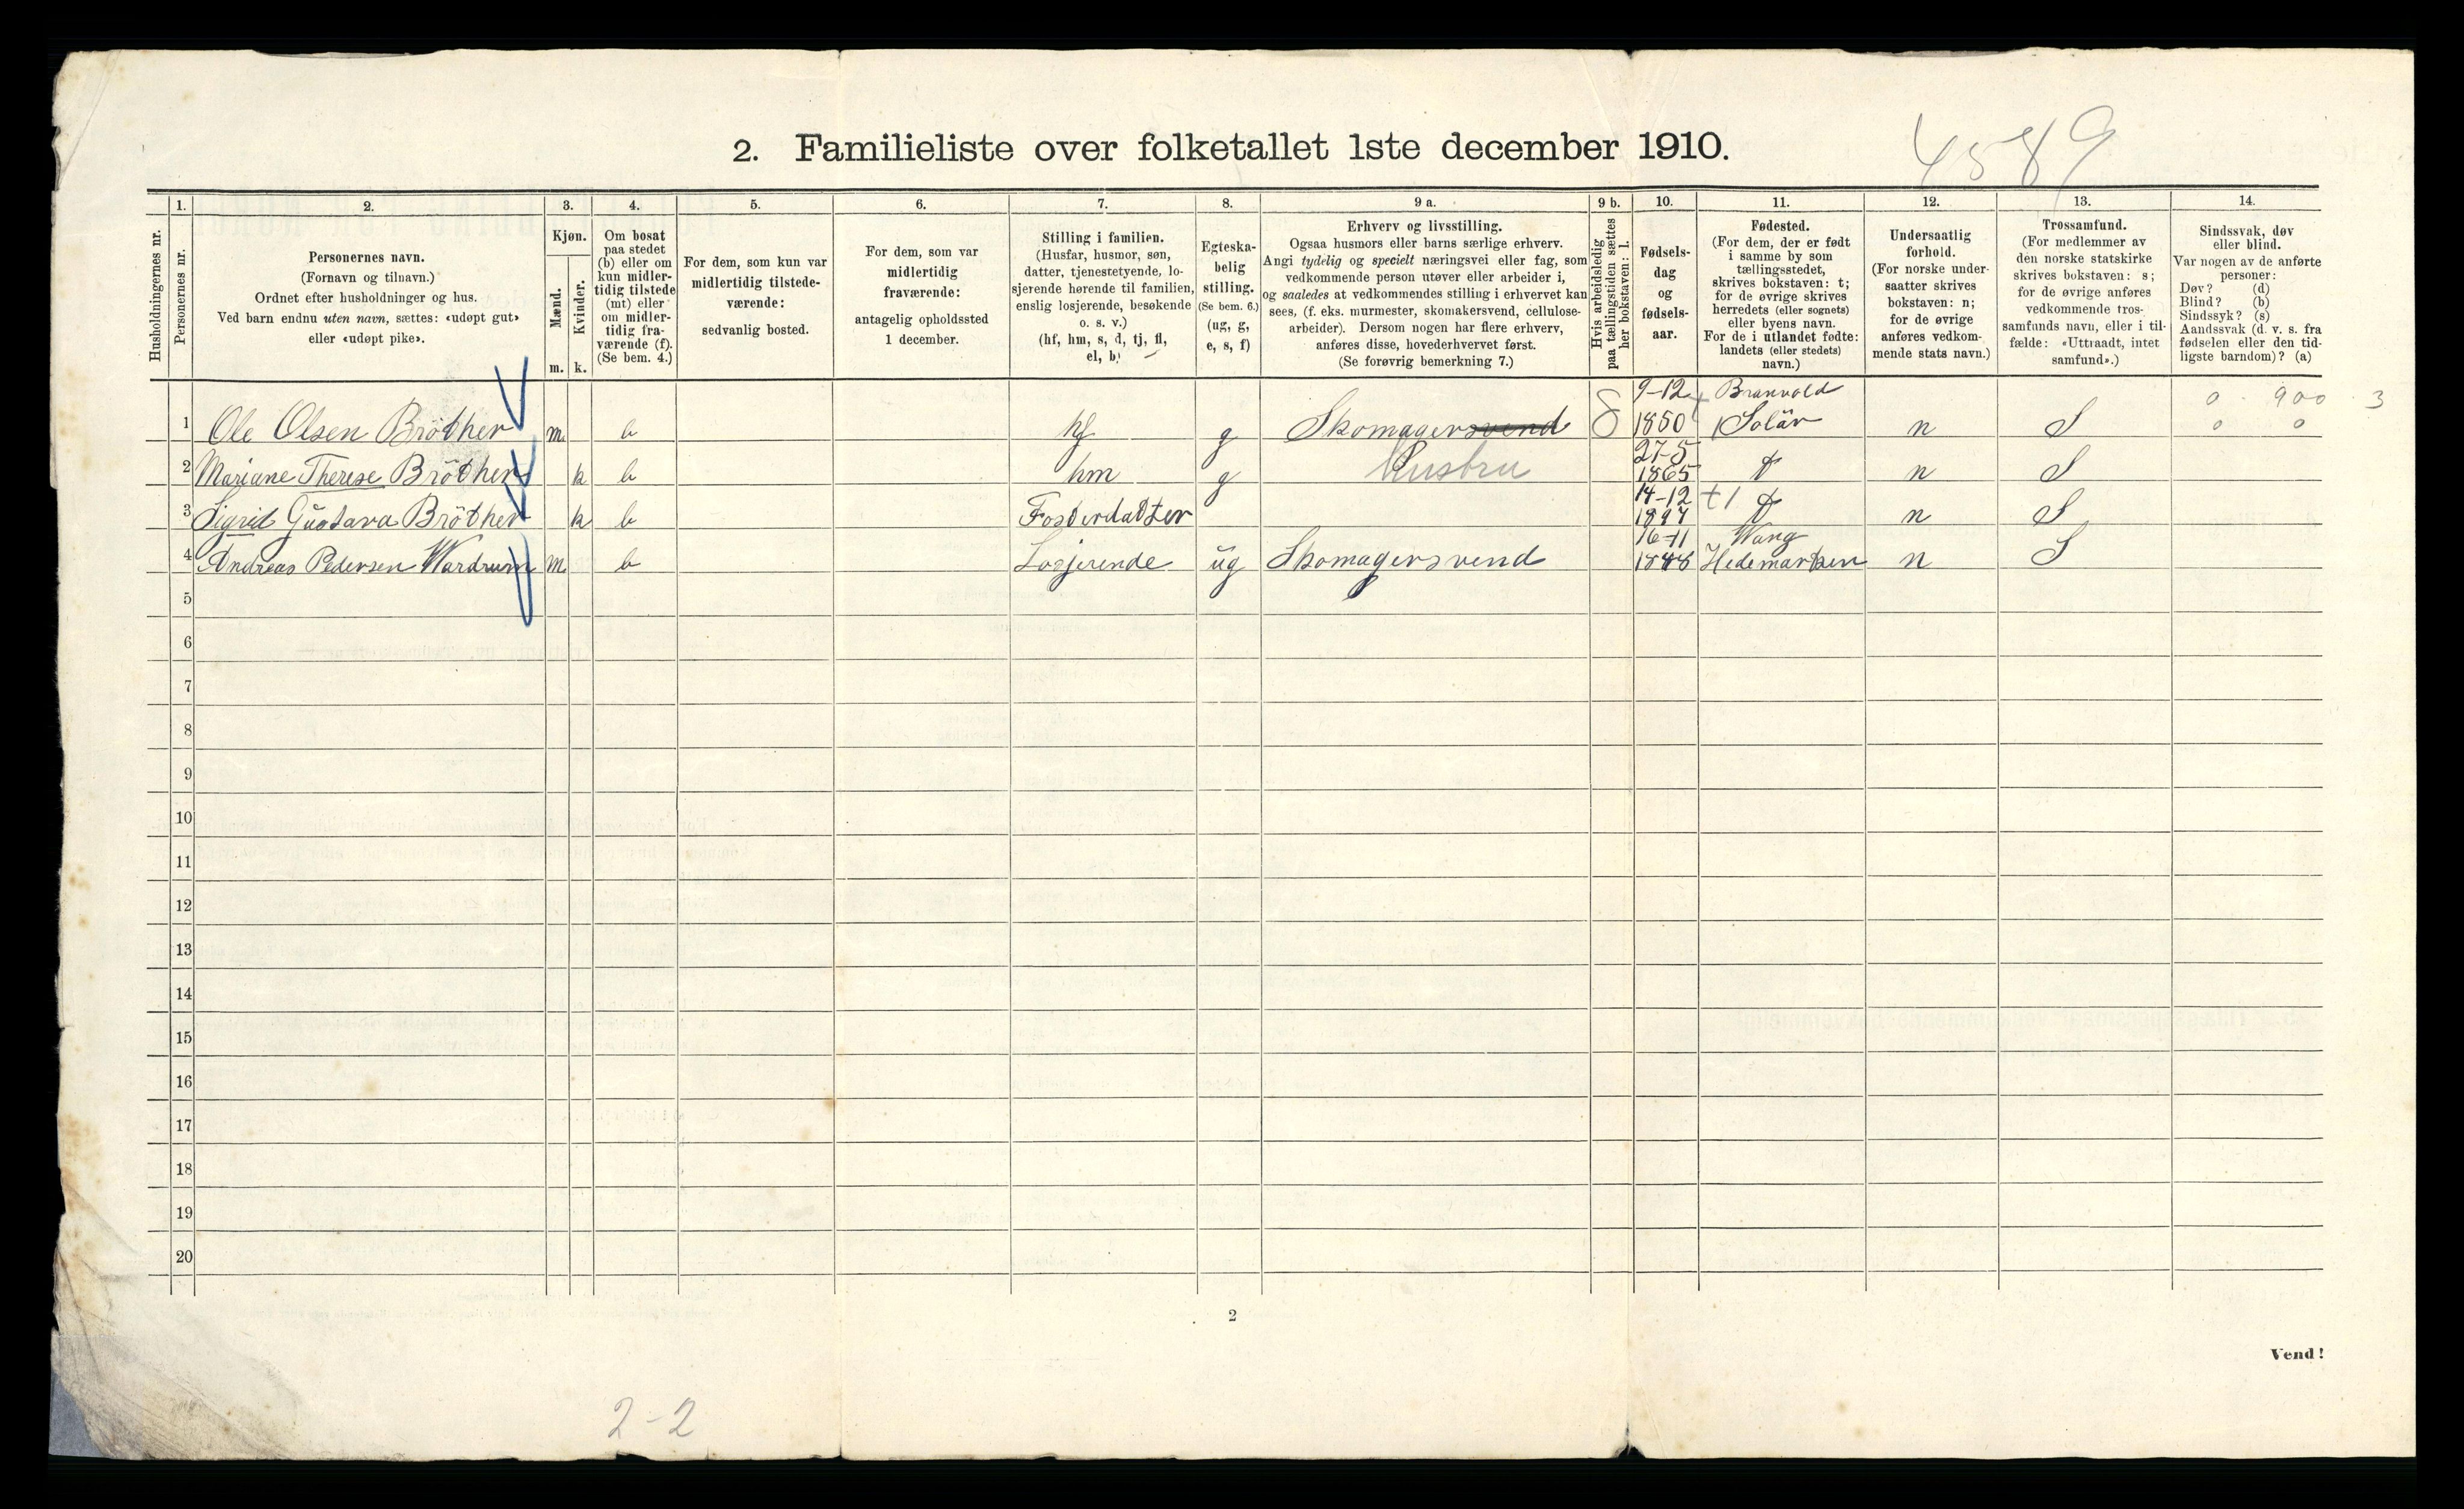 4589
2. Familieliste over folketallet 1ste december 1910.
1. 2. 3. 4. 5. 6. 7. 8. 9 a. 9 b. 10. 11. 12. 13. 14.
Husholdningernes nr.
Personernes nr.
Personernes navn.
(Fornavn og tilnavn.)
Ordnet efter husholdninger og hus.
Ved barn endnu uten navn, sættes: «udøpt gut»
eller «udøpt pike».
Kjøn.
Mænd.
Kvinder.
m. k.
Om bosat
paa stedet
(b) eller om
kun midler-
tidig tilstede
(mt) eller
om midler-
tidig fra-
værende (f).
(Se bem. 4.)
For dem, som kun var
midlertidig tilstede-
værende:
sedvanlig bosted.
For dem, som var
midlertidig
fraværende:
antagelig opholdssted
1 december.
Stilling i familien.
(Husfar, husmor, søn,
datter, tjenestetyende, lo-
sjerende hørende til familien,
enslig losjerende, besøkende
o. s. v.)
(hf, hm, s, d, tj, fl,
el, b)
Egteska-
belig
stilling.
(Se bem. 6.)
(ug, g,
e, s, f)
Erhverv og livsstilling.
Ogsaa husmors eller barns særlige erhverv.
Angi tydelig og specielt næringsvei eller fag, som
vedkommende person utøver eller arbeider i,
og saaledes at vedkommendes stilling i erhvervet kan
sees, (f. eks. murmester, skomakersvend, cellulose-
arbeider). Dersom nogen har flere erhverv,
anføres disse, hovederhvervet først.
(Se forøvrig bemerkning 7.)
Hvis arbeidsledig
paa tællingstiden sættes
her bokstaven: l.
Fødsels-
dag
og
fødsels-
aar.
Fødested.
(For dem, der er født
i samme by som
tællingsstedet,
skrives bokstaven: t;
for de øvrige skrives
herredets (eller sognets)
eller byens navn.
For de i utlandet fødte:
landets (eller stedets)
navn.)
Undersaatlig
forhold.
(For norske under-
saatter skrives
bokstaven: n;
for de øvrige
anføres vedkom-
mende stats navn.)
Trossamfund.
(For medlemmer av
den norske statskirke
skrives bokstaven: s;
for de øvrige anføres
vedkommende tros-
samfunds navn, eller i til-
fælde: «Uttraadt, intet
samfund».)
Sindssvak, døv
eller blind.
Var nogen av de anførte
personer:
Døv? (d)
Blind? (b)
Sindssyk? (s)
Aandssvak (d. v. s. fra
fødselen eller den tid-
ligste barndom)? (a)
9-12 Branvold 0 · 900 · 3
1 Ole Olsen Bröther m. b hf g Skomagersvend 1850 Solär n S 0 0
27-5
2 Mariane Therese Bröther k b hm g Husbru 1865 t n S
14-12
3 Sigrid Gustava Bröther k b Fosterdatter 1897 t n S
16-11 Wang
4 Andreas Pedersen Wardrum m b Losjerende ug Skomagersvend 1848 Hedemarken n S
5
6
7
8
9
10
11
12
13
14
15
16
17
18
19
20
2
Vend!
2-2